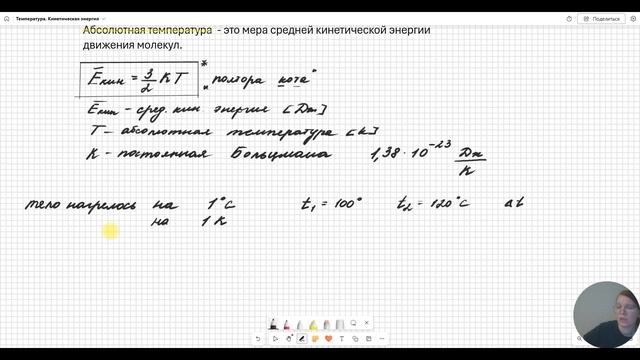 Температура. Кинетическая энергия
Поделиться
Абсолютная температура - это мера средней кинетической энергии
движения молекул.
Ēкин = 3/2 KT * „ полтора кота"
Ēкин - сред. кин. энергия [Дж]
T - абсолютная температура [K]
K - постоянная Больцмана 1,38 · 10⁻²³ Дж/K
тело нагрелось на 1°C t₁ = 100° t₂ = 120°C Δt
на 1 K